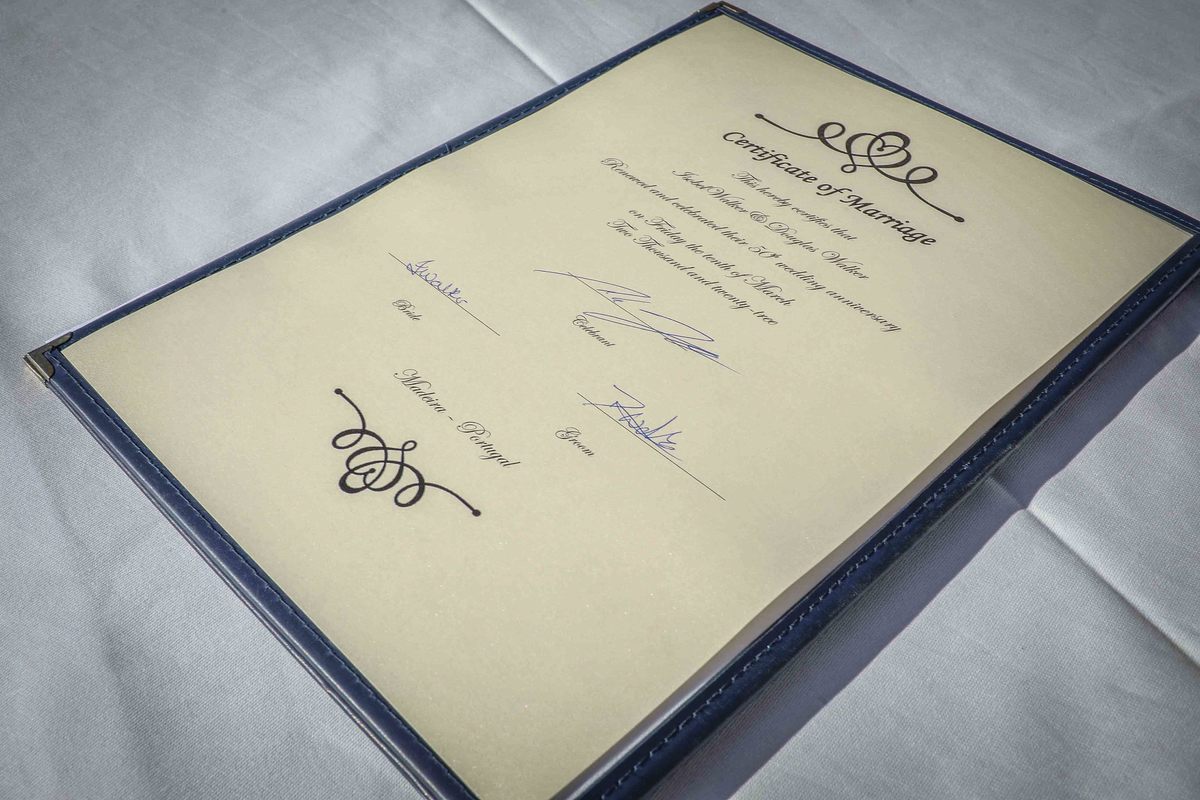 Certificate of Marriage
This hereby certifies that
Isobel Walker & Douglas Walker
Renewed and celebrated their 50th wedding anniversary
on Friday the tenth of March
Two Thousand and twenty-tree
Celebrant
IWalker
Bride
DWalker
Groom
Madeira - Portugal